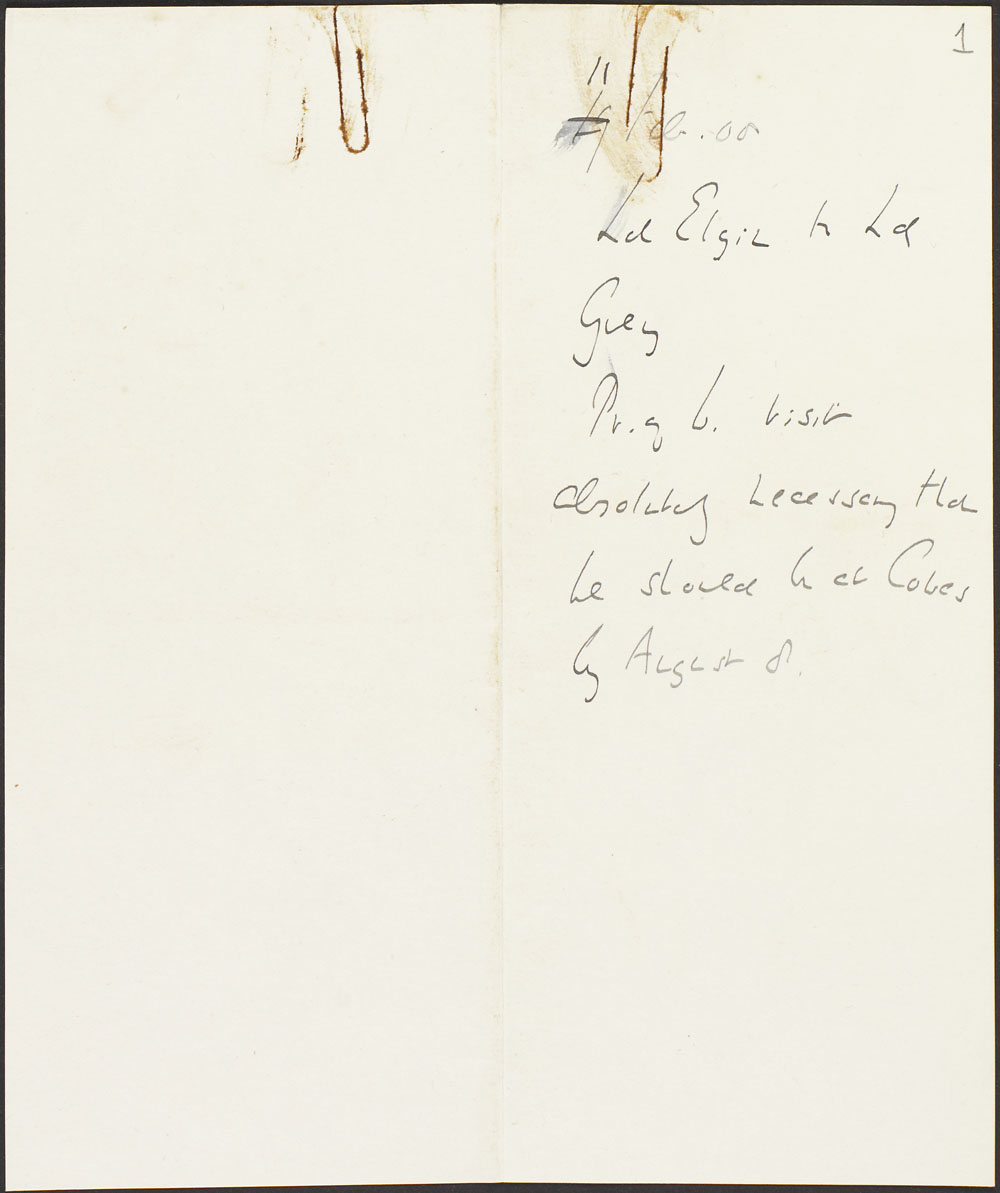 1
11
Feb. 08
Ld Elgin to Ld
Grey
Pr. of W. visit
absolutely necessary that
he should be at Cowes
by August 8.